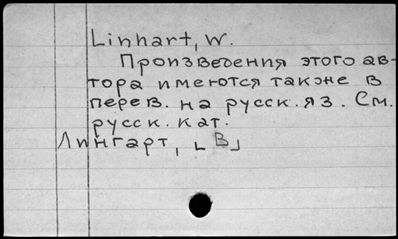 Linhart, W.
Произведения этого ав-
тора имеются также в
перев. на русск. яз. См.
русск. кат.
Лингарт, [В]